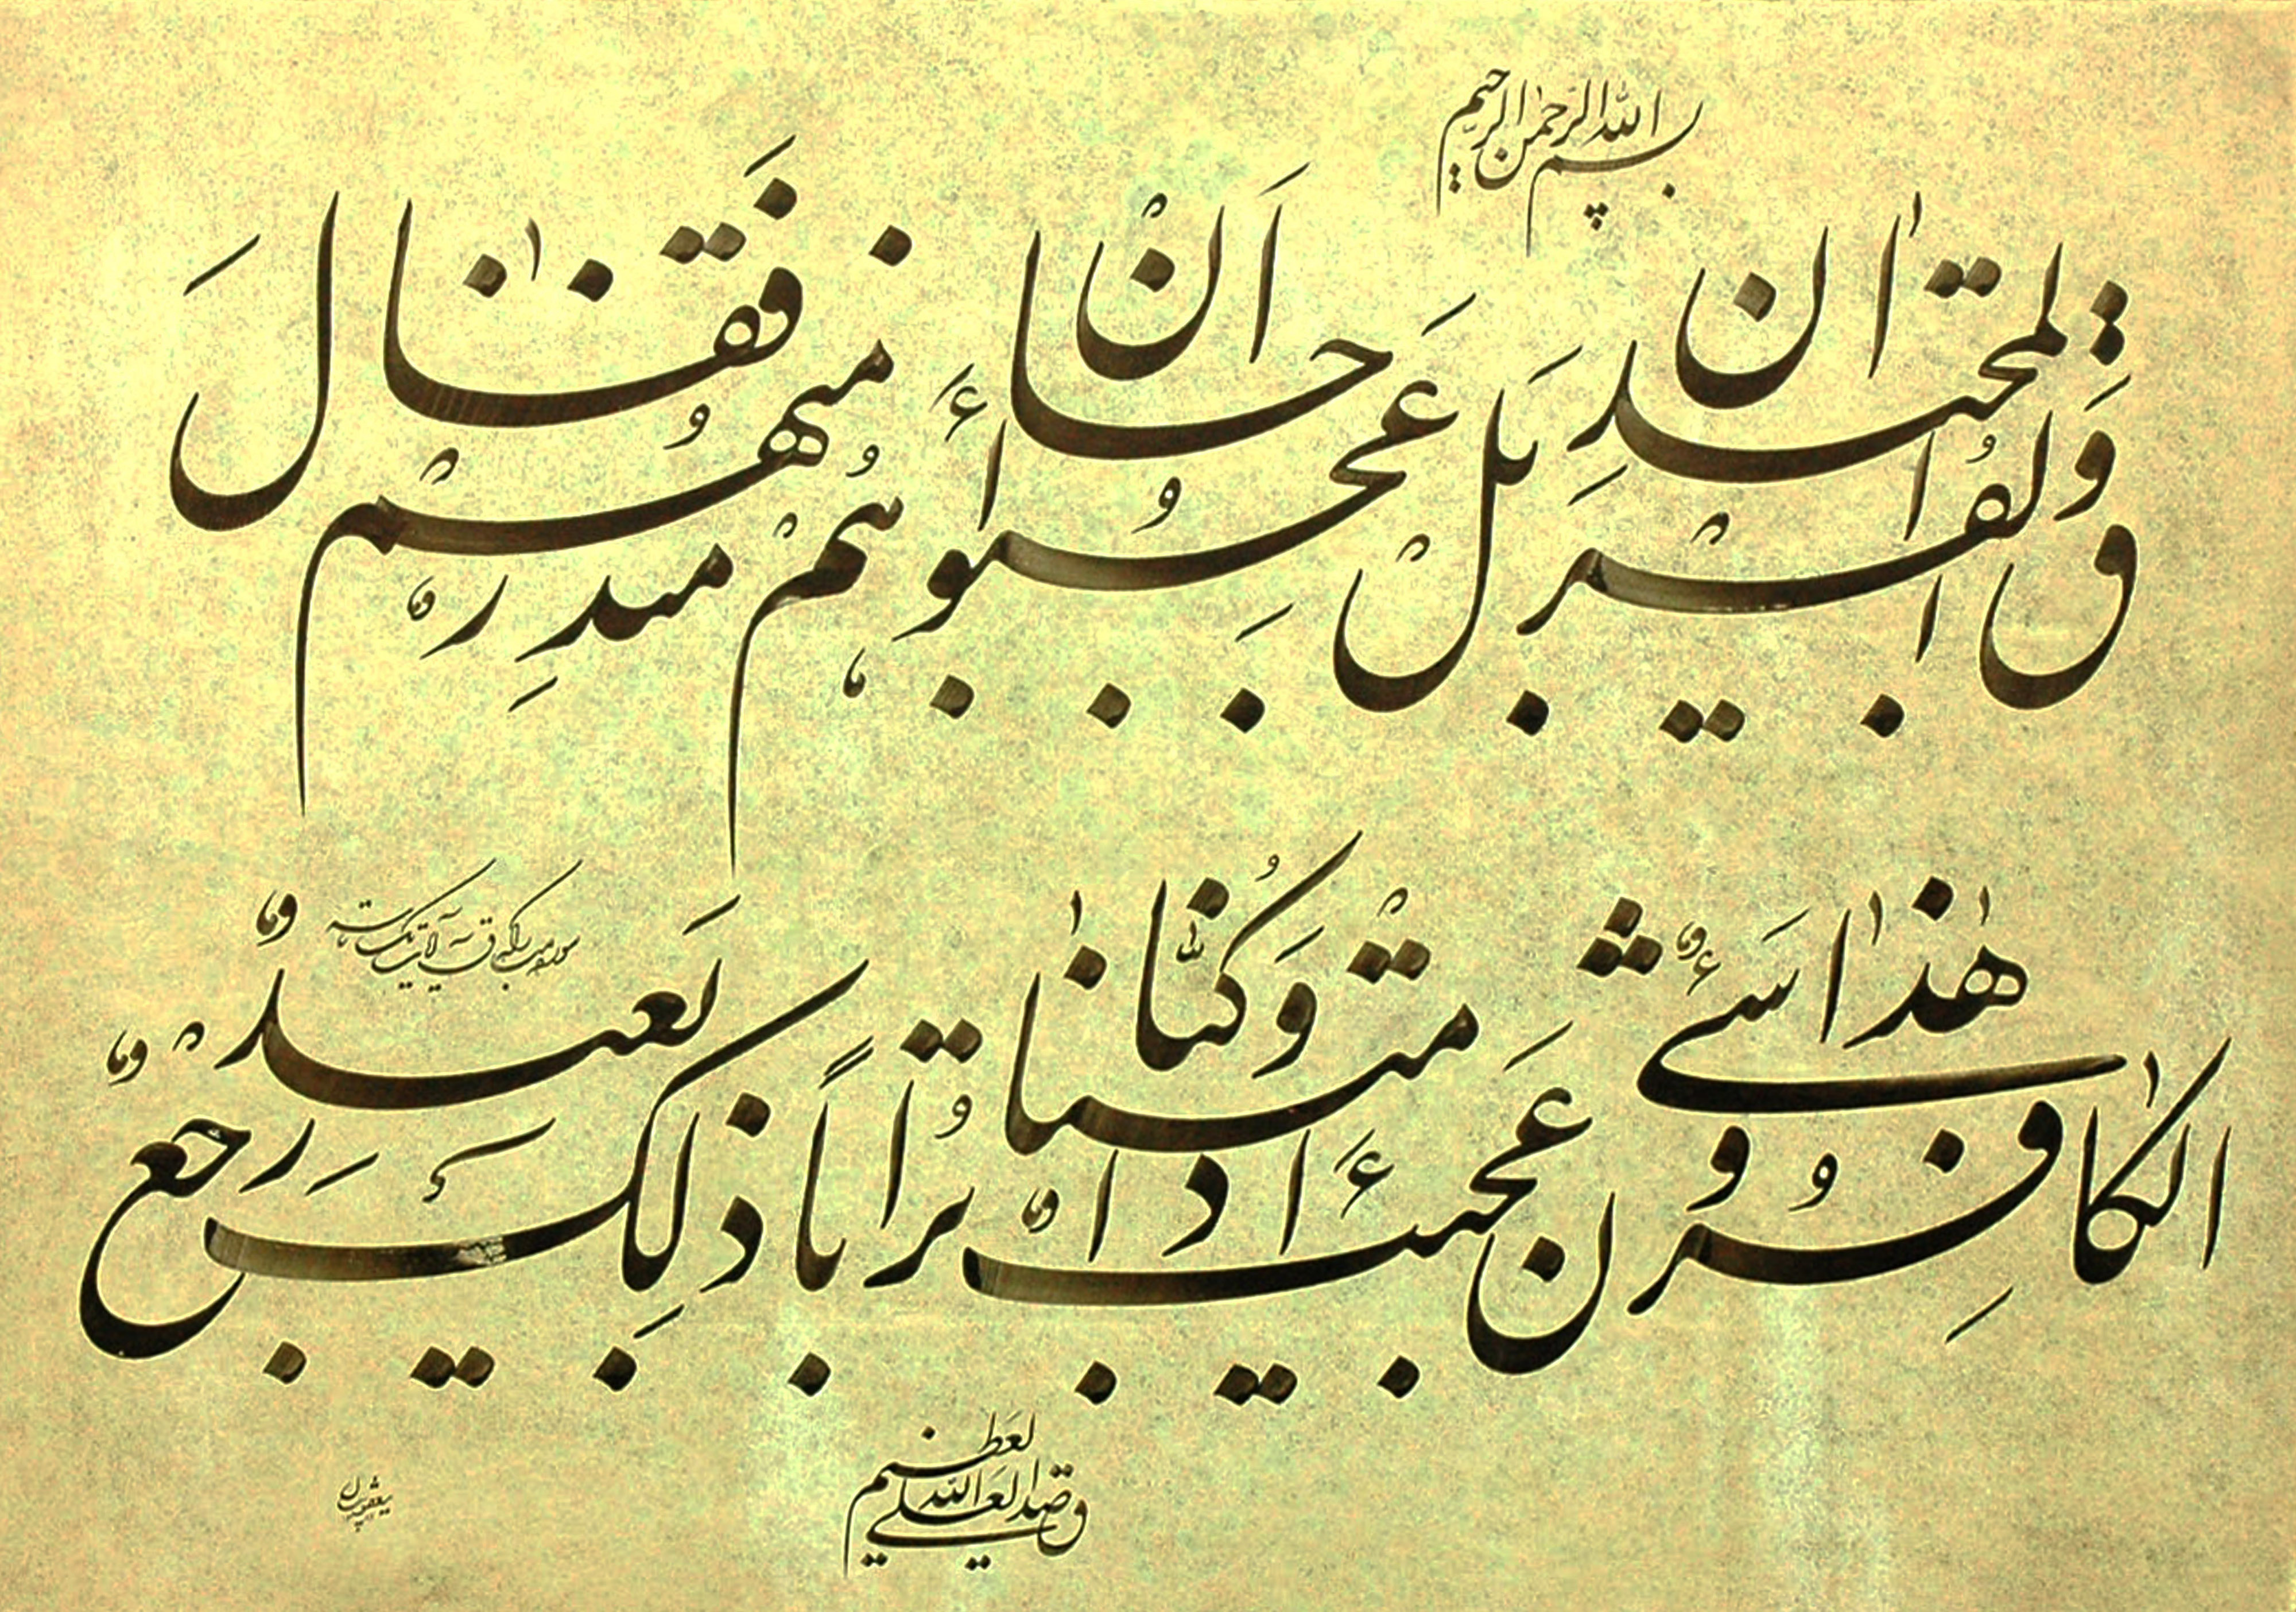 بسم الله الرحمن الرحیم
ق وَالقُرانِ المجیدِ بَل عَجِبوا اَن جاءَهُم مُنذِرٌ مِنهُم فَقالَ
الکافِرونَ هٰذا شَیءٌ عَجیبٌ ءَاِذا مِتنا وَکُنّا تُراباً ذٰلِکَ رَجعٌ بَعیدٌ
سوره مبارکه ق آیات یک تا سه
صدق الله العلی العظیم